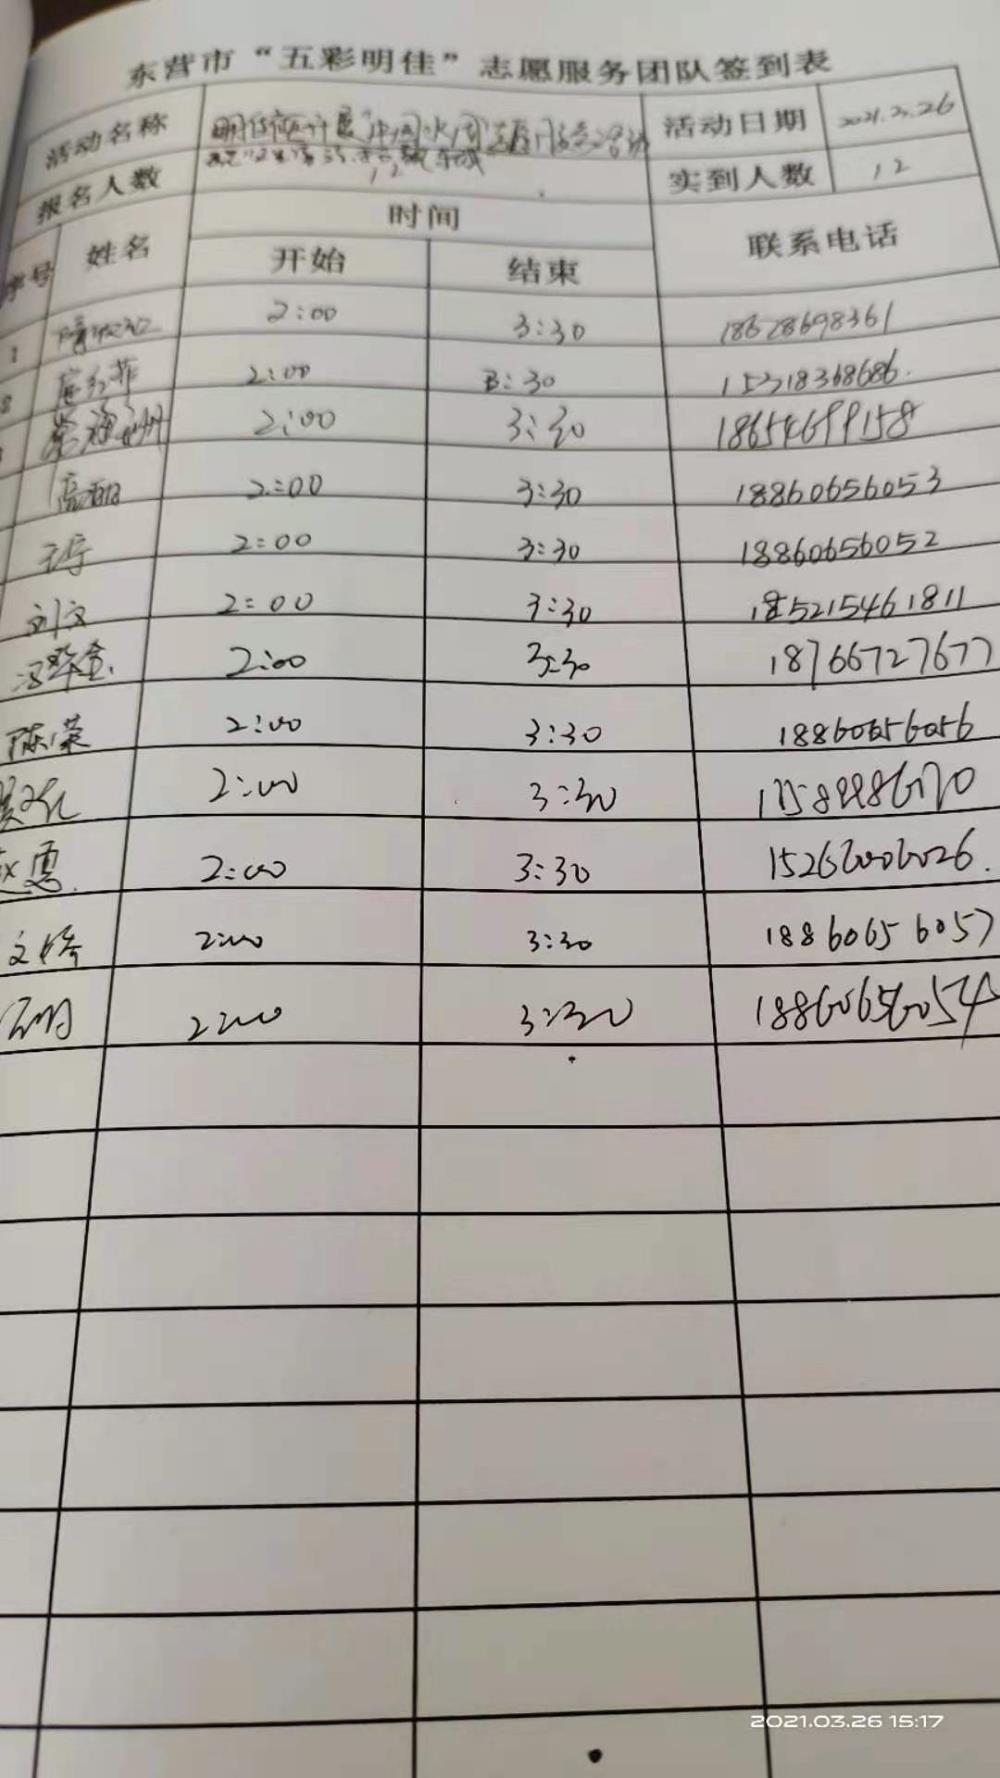 东营市“五彩明佳”志愿服务团队签到表
活动名称 明佳社区开展"中国水周"志愿服务活动 活动日期 2021.3.26
报名人数 12 实到人数 12
序号 姓名 时间 联系电话
开始 结束
1 2:00 3:30 18628698361
2 2:00 3:30 15318368686.
2:00 3:30 18654699158
高丽 2:00 3:30 18860656053
王宁 2:00 3:30 18860656052
刘文 2:00 3:30 185215461811
冯翠金. 2:00 3:30 18766727677
陈荣 2:00 3:30 18860656056
2:00 3:30
2:00 3:30 15266006026.
文修 2:00 3:30 18860656057
2:00 3:30 18860656054
2021.03.26 15:17